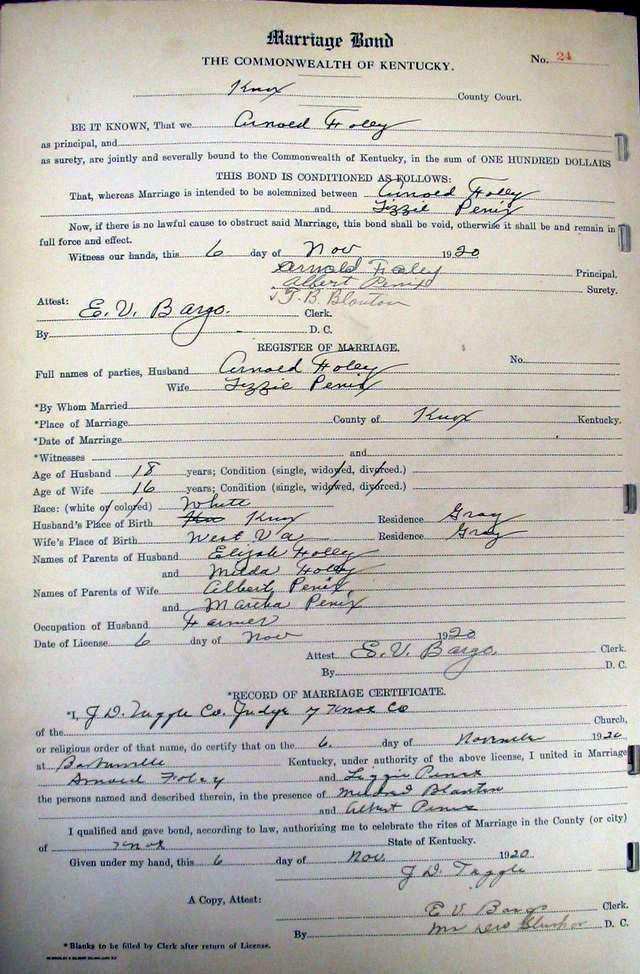 Marriage Bond
THE COMMONWEALTH OF KENTUCKY.
No. 24
Knox County Court.
BE IT KNOWN, That we Arnold Holley
as principal, and
as surety, are jointly and severally bound to the Commonwealth of Kentucky, in the sum of ONE HUNDRED DOLLARS
THIS BOND IS CONDITIONED AS FOLLOWS:
That, whereas Marriage is intended to be solemnized between Arnold Holley
and Lizzie Penix
Now, if there is no lawful cause to obstruct said Marriage, this bond shall be void, otherwise it shall be and remain in
full force and effect.
Witness our hands, this 6 day of Nov 1920
Arnold Holey Principal.
Albert Penix Surety.
T. B. Blanton
Attest: E. V. Bargo. Clerk.
By D. C.
REGISTER OF MARRIAGE.
Full names of parties, Husband Arnold Holley No.
Wife Lizzie Penix
*By Whom Married
*Place of Marriage County of Knox Kentucky.
*Date of Marriage
*Witnesses and
Age of Husband 18 years; Condition (single, widowed, divorced.)
Age of Wife 16 years; Condition (single, widowed, divorced.)
Race: (white or colored) White
Husband's Place of Birth Knox Residence Gray
Wife's Place of Birth West Va Residence Gray
Names of Parents of Husband Elijah Holley
and Milda Holley
Names of Parents of Wife Albert Penix
and Martha Penix
Occupation of Husband Farmer
Date of License 6 day of Nov 1920
Attest E. V. Bargo Clerk.
By D. C.
*RECORD OF MARRIAGE CERTIFICATE.
*I, J D. Tuggle Co. Judge of Knox Co
of the Church,
or religious order of that name, do certify that on the 6 day of November 1920
at Barbourville Kentucky, under authority of the above license, I united in Marriage
Arnold Holey and Lizzie Penix
the persons named and described therein, in the presence of Mildred Blanton
and Albert Penix
I qualified and gave bond, according to law, authorizing me to celebrate the rites of Marriage in the County (or city)
of Knox State of Kentucky.
Given under my hand, this 6 day of Nov. 1920
J D. Tuggle
A Copy, Attest:
E V. Bargo Clerk.
By D. C.
*Blanks to be filled by Clerk after return of License.